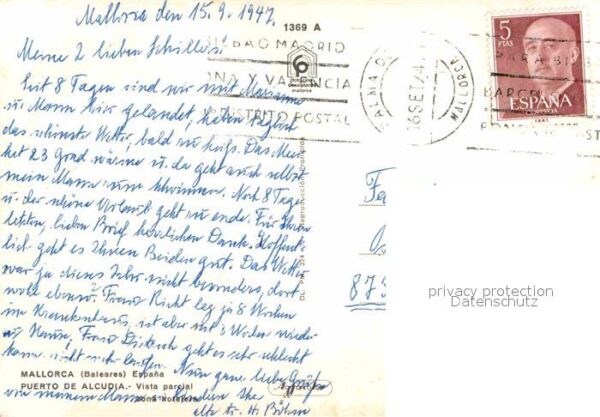 Mallorca den 15.9.1974.
Meine 2 lieben Schillers!
Seit 8 Tagen sind wir mit
u Mann hier gelandet, haben täglich
das schönste Wetter, bald zu heiß. Das Meer
hat 23 Grad wärme u. da geht auch selbst
mein Mann zum schwimmen. Noch 8 Tage
u. der schöne Urlaub geht zu ende. Für Ihren
letzten, lieben Brief herzlichen Dank. Hoffent
lich geht es Ihnen Beiden gut. Das Wetter
war ja dieses Jahr nicht besonders, dort
wohl ebenso? Frau Richt lag ja 8 Wochen
im Krankenhaus, ist aber seit 3 Wochen wieder
zu Hause, Frau geht es sehr schlecht
kann nicht mehr laufen. Nun ganz liebe Grüße
von meinem Mann u.
alte Fr. H. Böhm
1369 A
BILBAO MADRID
ONA Y VALENCIA
DISTRITO POSTAL
PALMA DE MALLORCA
16 SET 74
PARA BI
BARCE
5
PTAS
ESPAÑA
Fa
875
privacy protection
Datenschutz
MALLORCA (Baleares) España
PUERTO DE ALCUDIA.- Vista parcial
zona hotelera